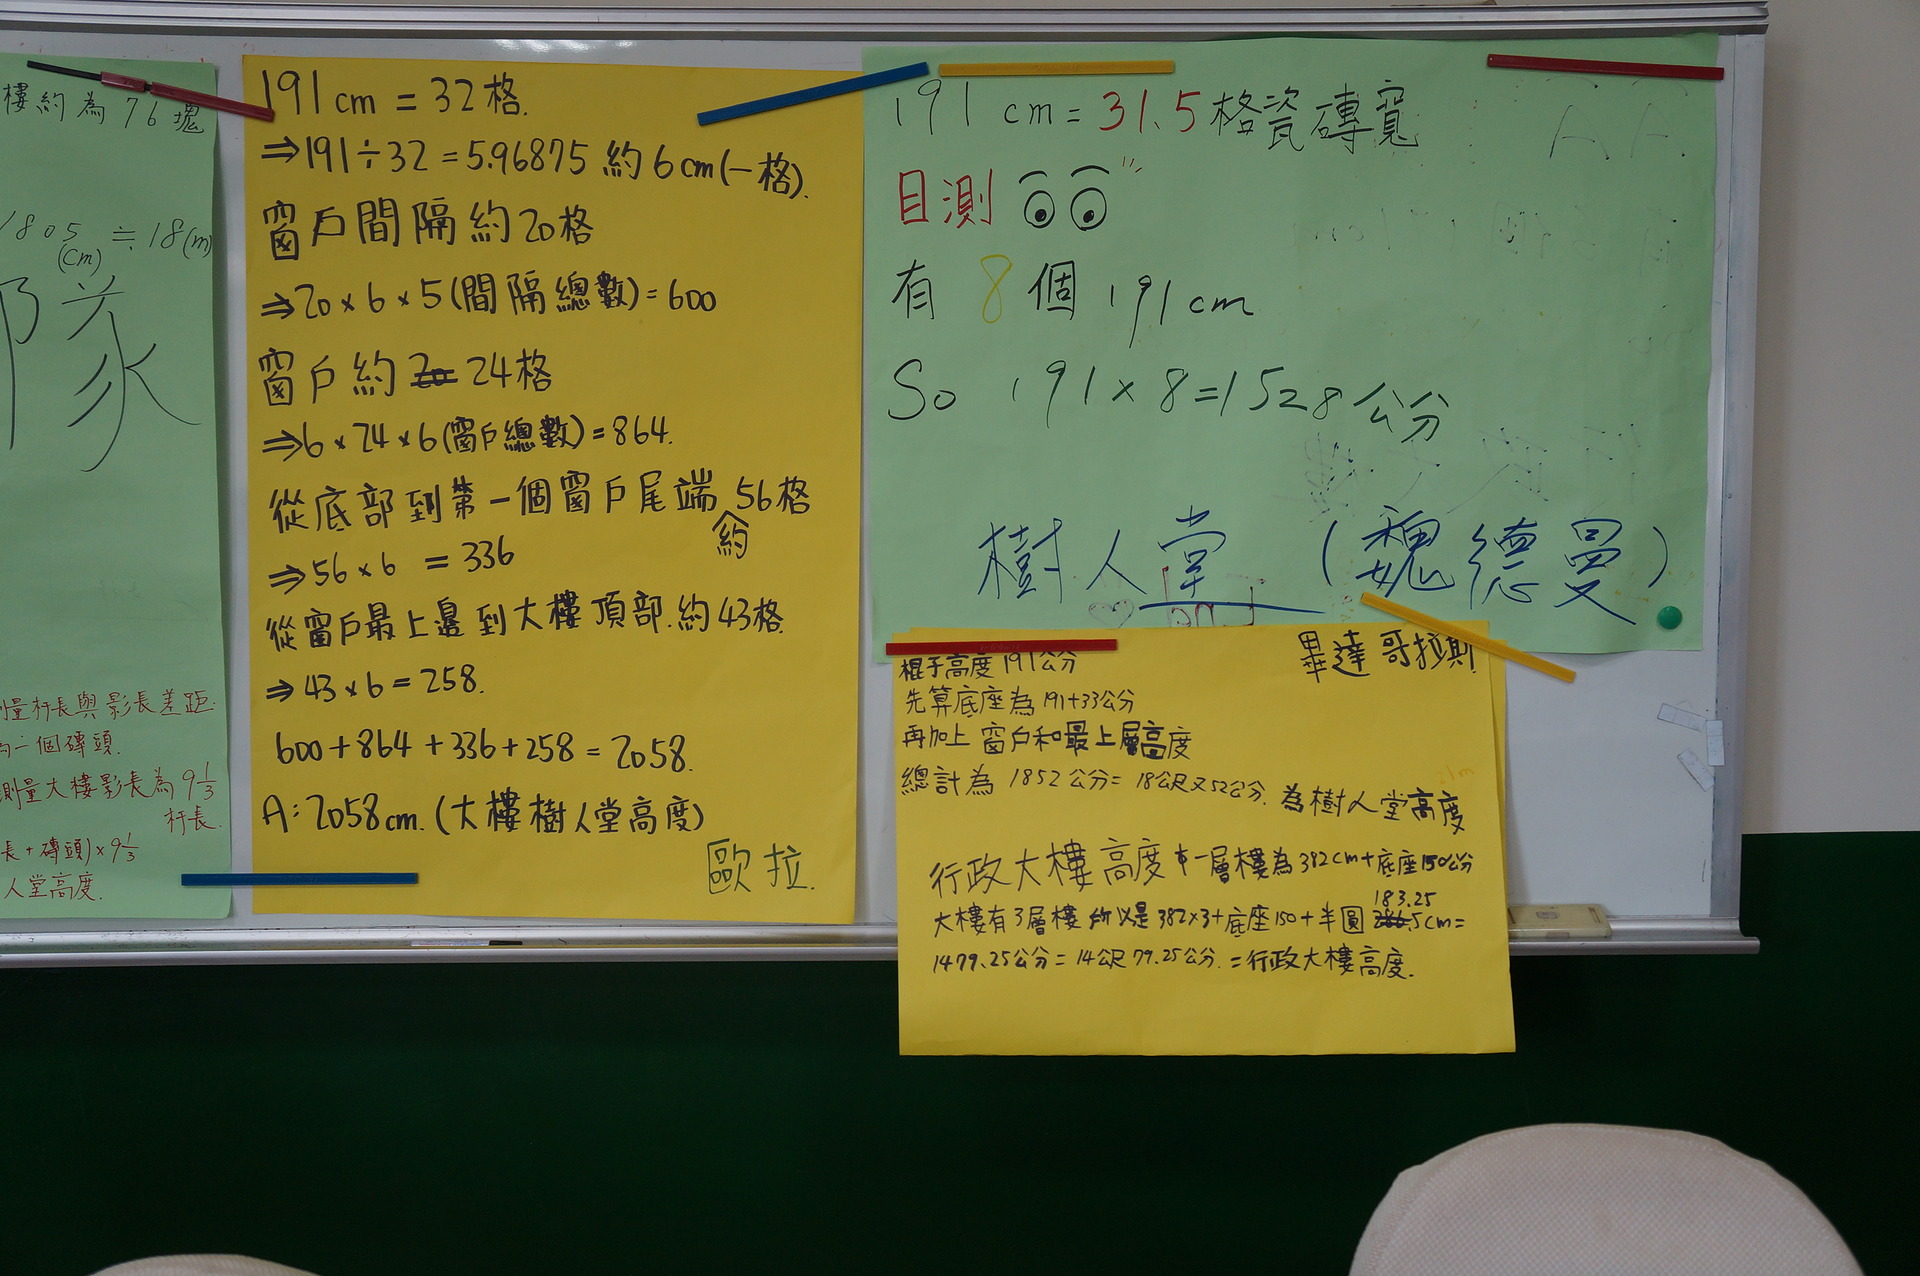 樓約為76塊
1805(cm)≒18(m)
隊
量杆長與影長差距
為一個磚頭.
測量大樓影長為9 1/3
杆長.
長+磚頭)×9 1/3
人堂高度.
191cm = 32格.
⇒191÷32=5.96875 約6cm(一格).
窗戶間隔約20格
⇒20×6×5(間隔總數)=600
窗戶約 24格
⇒6×24×6(窗戶總數)=864.
從底部到第一個窗戶尾端約56格
⇒56×6 = 336
從窗戶最上邊到大樓頂部.約43格.
⇒43×6=258.
600+864+336+258=2058.
A:2058cm.(大樓樹人堂高度)
歐拉.
191 cm=31.5格瓷磚寬
目測
有 8 個 191cm
So 191×8=1528公分
樹人堂 (魏德曼)
畢達哥拉斯
棍子高度191公分
先算底座為191+33公分
再加上 窗戶和最上層高度
總計為 1852公分=18公尺又52公分. 為樹人堂高度
行政大樓高度 一層樓為382cm+底座150公分
大樓有3層樓 所以是382×3+底座150+半圓183.25cm=
1479.25公分=14公尺79.25公分.=行政大樓高度.